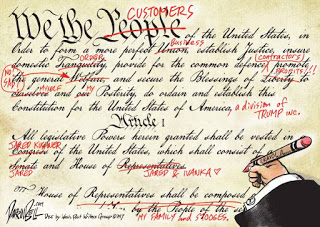 CUSTOMERS
We the People of the United States, in
business
Order to form a more perfect Union, establish Justice, insure
ORDER (contractors)
domestic Tranquility, provide for the common defence, promote
NO FAIR PROFITS!!
the general Welfare, and secure the Blessings of Liberty to
MYSELF MY
ourselves and our Posterity, do ordain and establish this
Constitution for the United States of America, a division of TRUMP INC.
Article I
All legislative Powers herein granted shall be vested in
JARED KUSHNER
Congress of the United States, which shall consist of
JARED
Senate and House of Representatives
JARED & IVANKA
House of Representatives shall be composed
by the People of the
MY FAMILY and STOOGES.